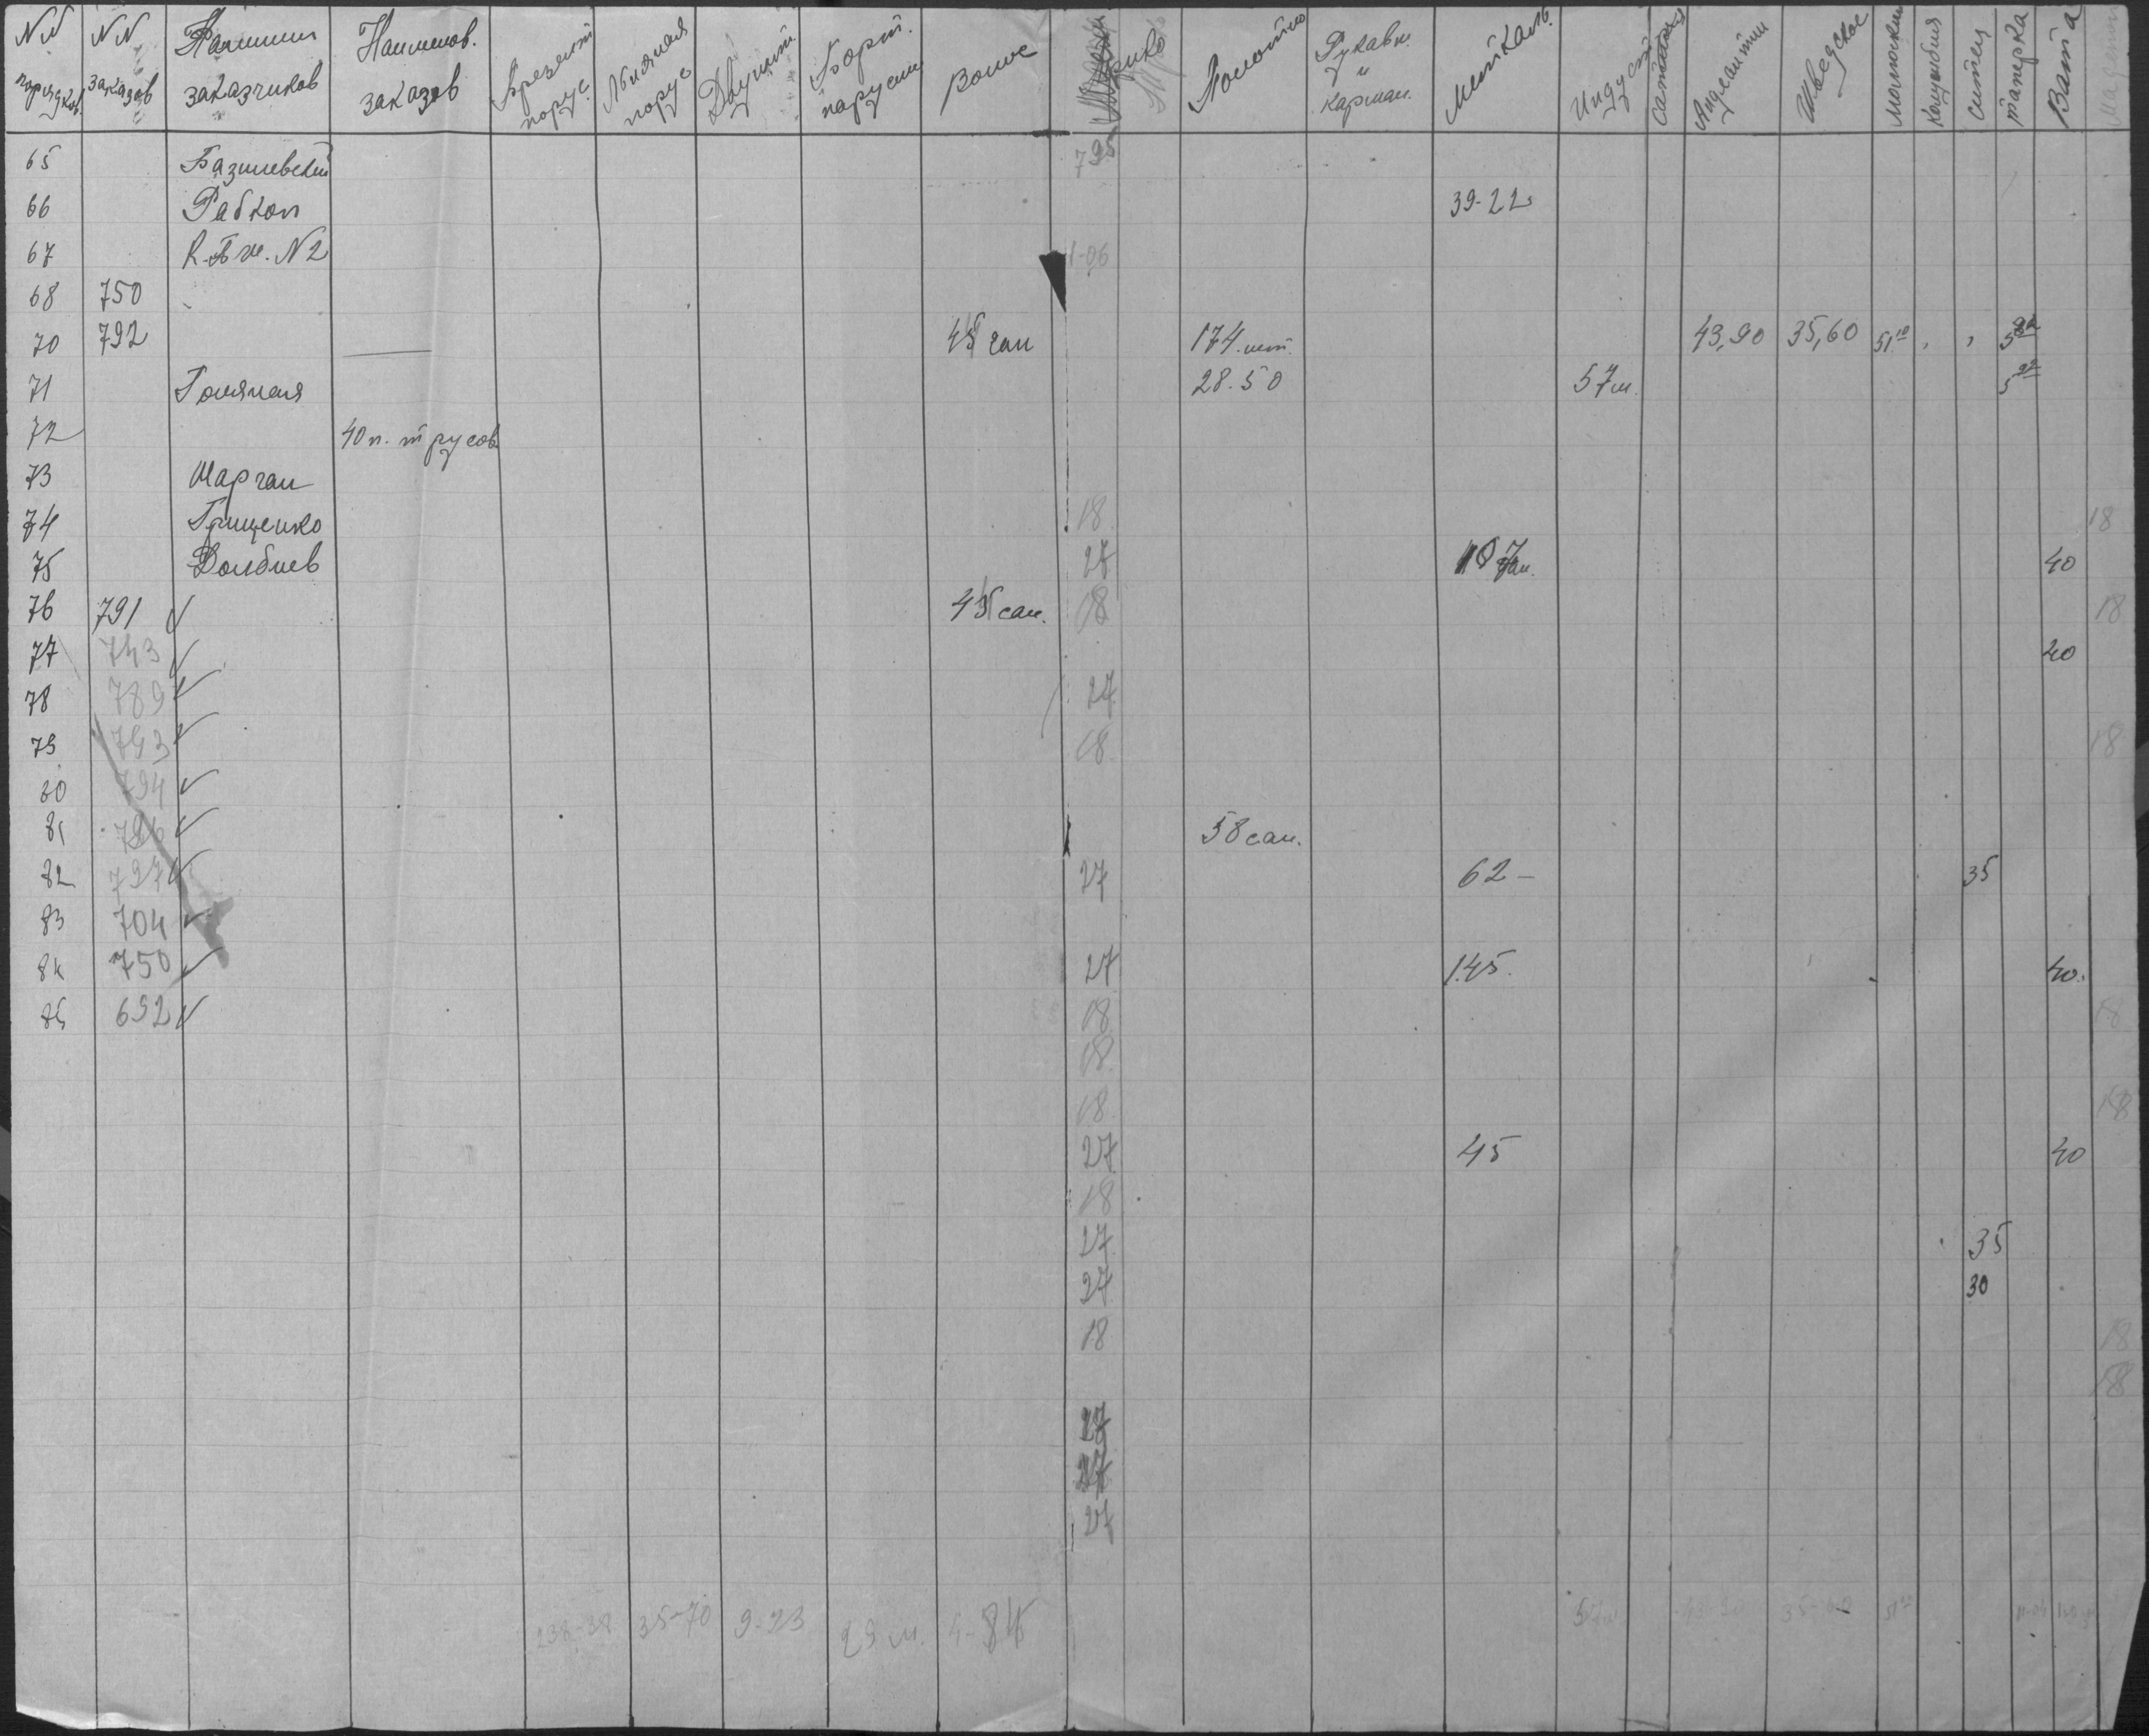 NN порядков. NN заказов Фамилии заказчиков Наименов. заказов Брезент порус. Льняная порус Двунит. Борт. парусин Волос Трико Полотно Рукавн. и карман. Миткаль Индуст Сатин Шведское Молюскин Ситец Ватa Мадепл
65 Базилевский
66 Рабкоп 39-22
67 N2 1-06
68 750
70 792 45 сан 174 шт. 43,90 35,60 51 10
71 28.50 57 м.
72 40 п. трусов
73 Марган
74 Грищенко 18 18
75 Долбнев 27 40
76 791 45 сан. 18 18
77 743 40
78 789 27
79 793 18 18
80 794
81 796 58 сан.
82 797 27 62 - 35
83 704
84 750 27 145. 40.
85 692 18 18
18
18 18
27 45 40
18
27 35
27 30
18 18
18
27
27
27
238-38 35-70 9-93 29 м. 57 м 35-60